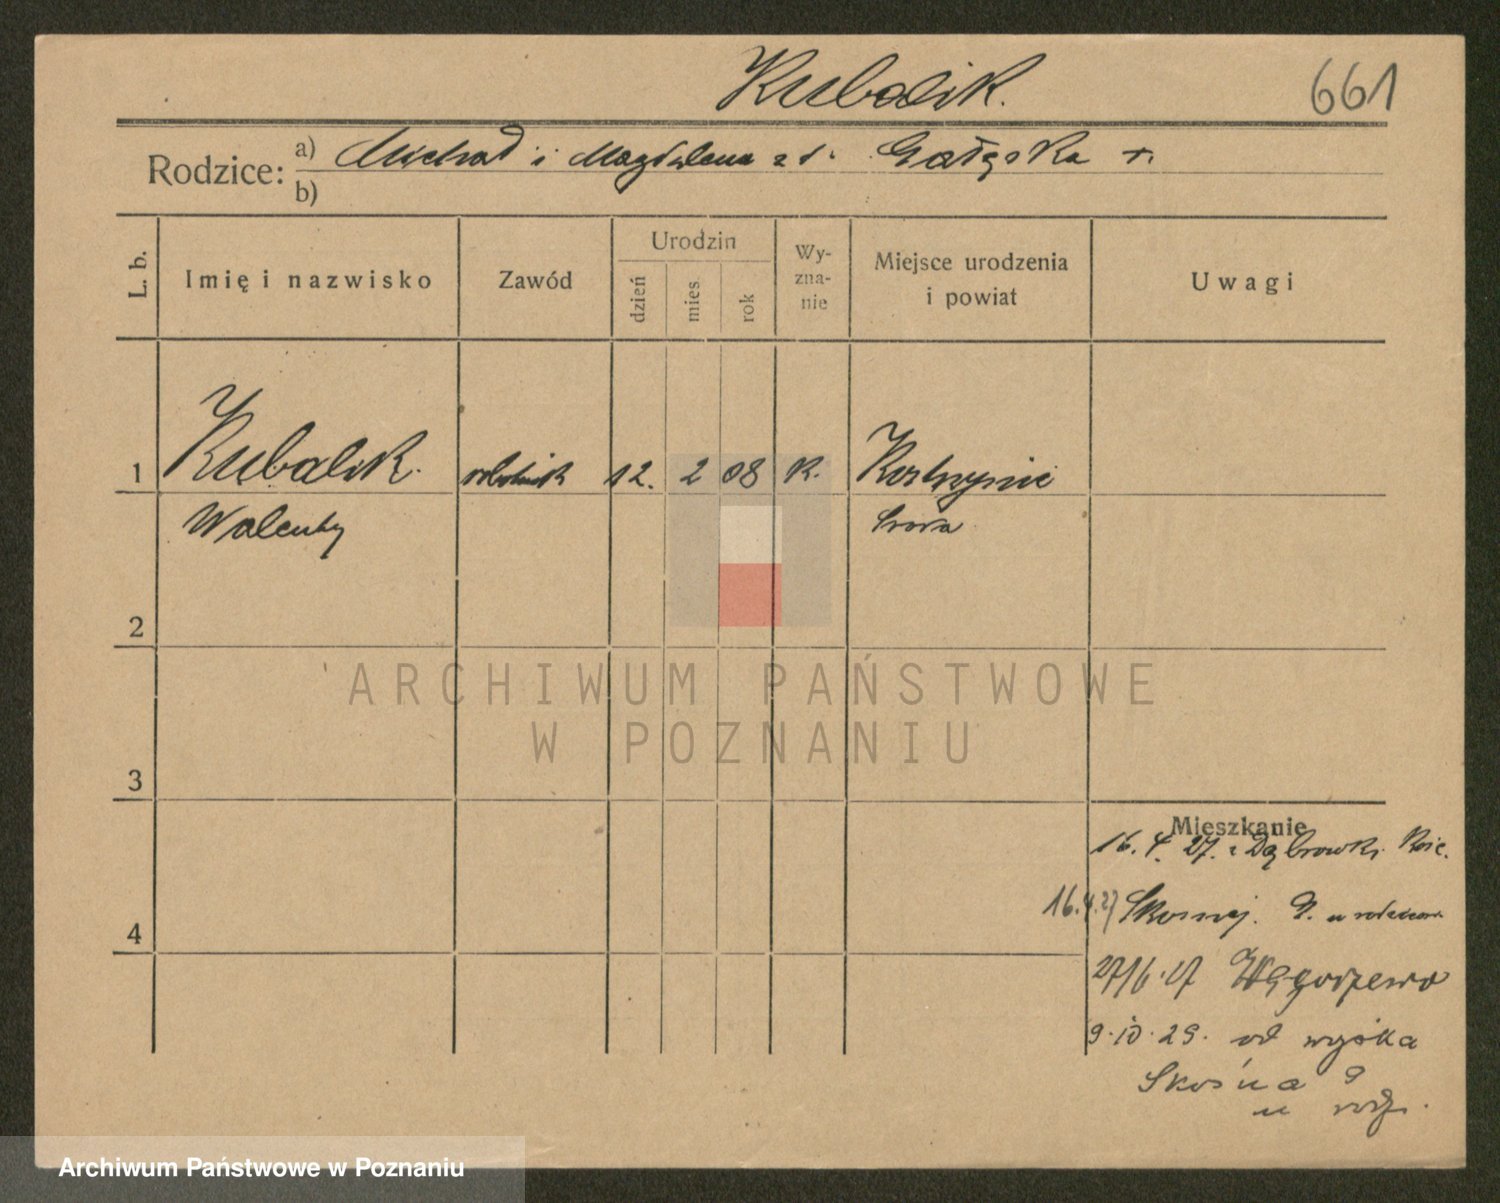 Kubalik.
661
Rodzice: a) Michał i Magdalena z d. Gałęska +.
b)
L. b.
Imię i nazwisko
Zawód
Urodzin
dzień
mies.
rok
Wy-
zna-
nie
Miejsce urodzenia
i powiat
Uwagi
1 Kubalik. robotnik 12. 2 08 K.
Walenty
2
3
4
Mieszkanie
16. 4. 27. z Dąbrowki Kośc.
16.4.27 Skośnej. 9. u rodziców
27/6.27 Węgorzewo
9.10.29. od wojska
Skośna 9
u rodz.
ARCHIWUM PAŃSTWOWE
W POZNANIU
Archiwum Państwowe w Poznaniu